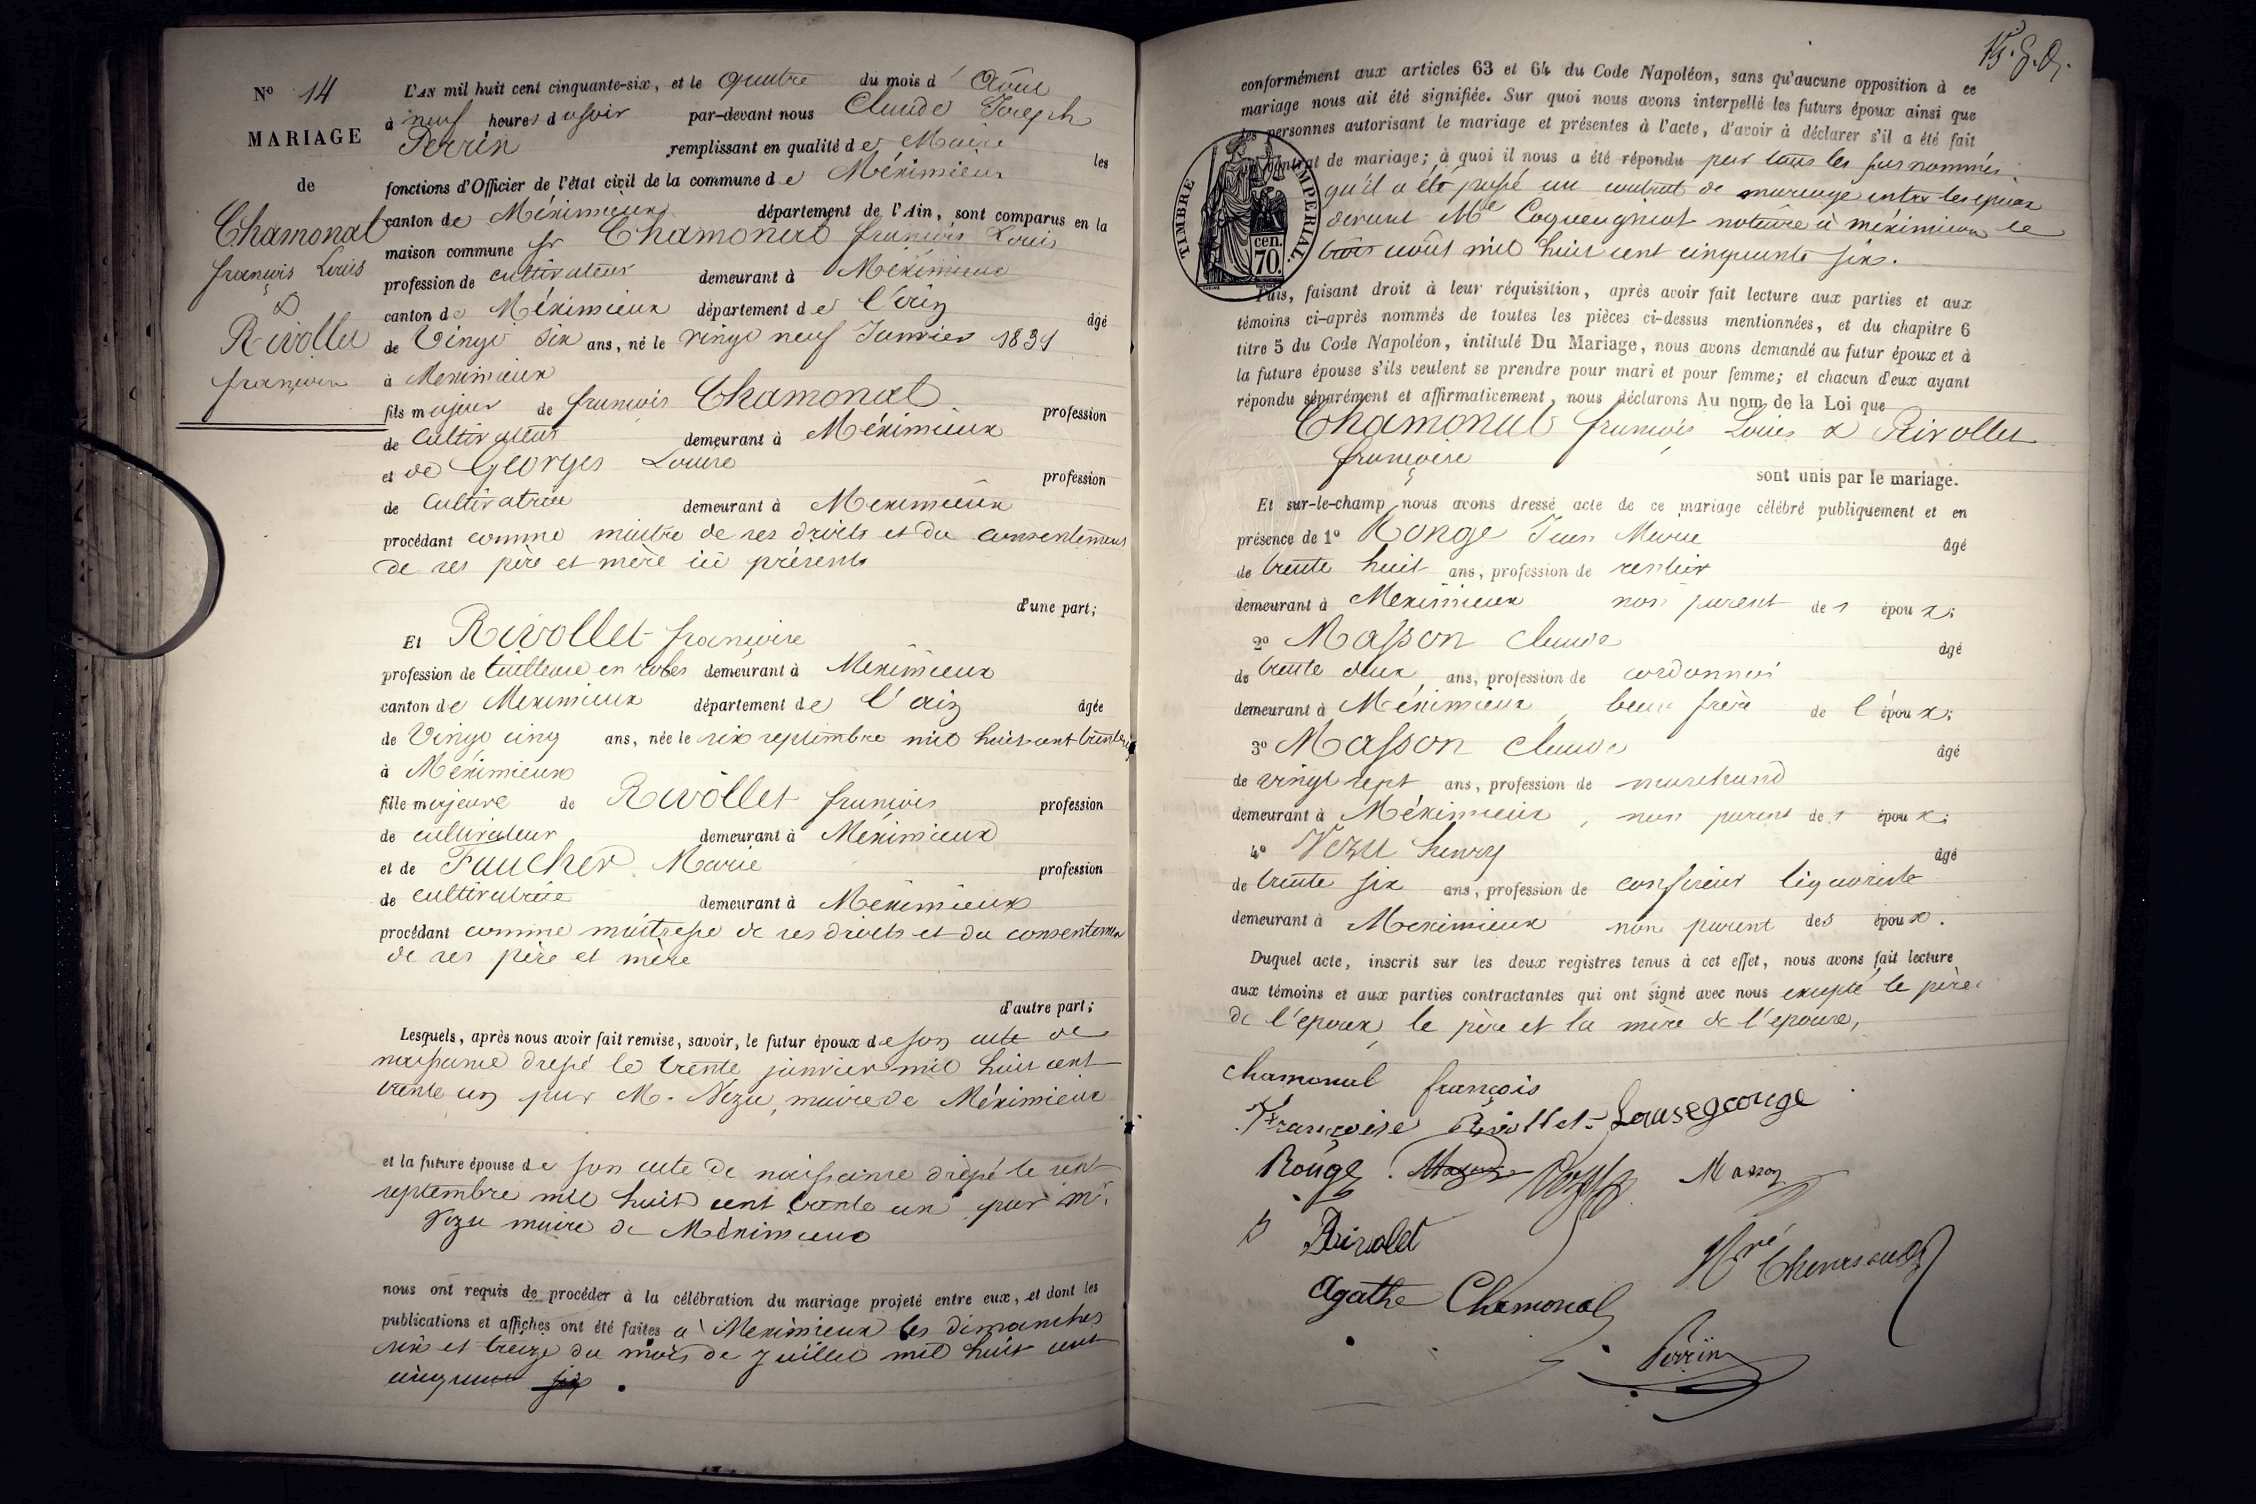 Nº 14
MARIAGE
de
Chamonal
françois Louis
&
Rivollet
françoise
L'AN mil huit cent cinquante-six, et le quatre du mois d'Août
à neuf heures du soir par-devant nous Claude Joseph
Perrin remplissant en qualité de Maire les
fonctions d'Officier de l'état civil de la commune de Méximieux
canton de Méximieux département de l'Ain, sont comparus en la
maison commune sr Chamonal françois Louis
profession de cultivateur demeurant à Méximieux
canton de Méximieux département de l'ain âgé
de Vingt six ans, né le vingt neuf Janvier 1831
à Meximieux
fils majeur de françois Chamonal profession
de Cultivateur demeurant à Méximieux
et de Georges Louise profession
de Cultivatrice demeurant à Meximieux
procédant comme maitre de ses droits et du consentement
de ses père et mère ici présents
d'une part;
Et Rivollet françoise
profession de tailleuse en robes demeurant à Meximieux
canton de Meximieux département de l'ain âgée
de Vingt cinq ans, née le six septembre mil huit cent trente
à Méximieux
fille majeure de Rivollet françois profession
de cultivateur demeurant à Méximieux
et de Faucher Marie profession
de cultivatrice demeurant à Méximieux
procédant comme maitresse de ses droits et du consentement
de ses père et mère
d'autre part;
Lesquels, après nous avoir fait remise, savoir, le futur époux de son acte de
naissance dressé le trente janvier mil huit cent
trente un par M. Vezu, maire de Méximieux
et la future épouse de son acte de naissance dressé le sept
septembre mil huit cent trente un par Mr.
Vezu maire de Méximieux
nous ont requis de procéder à la célébration du mariage projeté entre eux, et dont les
publications et affiches ont été faites à Meximieux les dimanches
six et treize du mois de Juillet mil huit cent
cinquante six.
conformément aux articles 63 et 64 du Code Napoléon, sans qu'aucune opposition à ce
mariage nous ait été signifiée. Sur quoi nous avons interpellé les futurs époux ainsi que
les personnes autorisant le mariage et présentes à l'acte, d'avoir à déclarer s'il a été fait
contrat de mariage; à quoi il nous a été répondu par tous les sus nommés
qu'il a été passé un contrat de mariage entre les epoux
devant Me Coqueugniot notaire à méximieux le
trois août mil huit cent cinquante six.
TIMBRE IMPERIAL.
70. cen.
Puis, faisant droit à leur réquisition, après avoir fait lecture aux parties et aux
témoins ci-après nommés de toutes les pièces ci-dessus mentionnées, et du chapitre 6
titre 5 du Code Napoléon, intitulé Du Mariage, nous avons demandé au futur époux et à
la future épouse s'ils veulent se prendre pour mari et pour femme; et chacun d'eux ayant
répondu séparément et affirmativement, nous déclarons Au nom de la Loi que
Chamonal françois Louis & Rivollet
françoise
sont unis par le mariage.
Et sur-le-champ nous avons dressé acte de ce mariage célébré publiquement et en
présence de 1º Ronge Jean Marie âgé
de trente huit ans, profession de rentier
demeurant à Meximieux non parent des époux;
2º Masson Claude âgé
de trente deux ans, profession de cordonnier
demeurant à Méximieux, beau frère de l'époux;
3º Masson Claude âgé
de vingt sept ans, profession de marchand
demeurant à Méximieux, non parent des époux;
4º Vezu henry âgé
de trente six ans, profession de confiseur liquoriste
demeurant à Meximieux non parent des époux.
Duquel acte, inscrit sur les deux registres tenus à cet effet, nous avons fait lecture
aux témoins et aux parties contractantes qui ont signé avec nous excepté le père
de l'époux, le père et la mère de l'épouse,
chamonal françois
Françoise Rivollet Louisegeorge
Rouge Masson Vezu Masson
Rivolet
Agathe Chamonal
Perrin